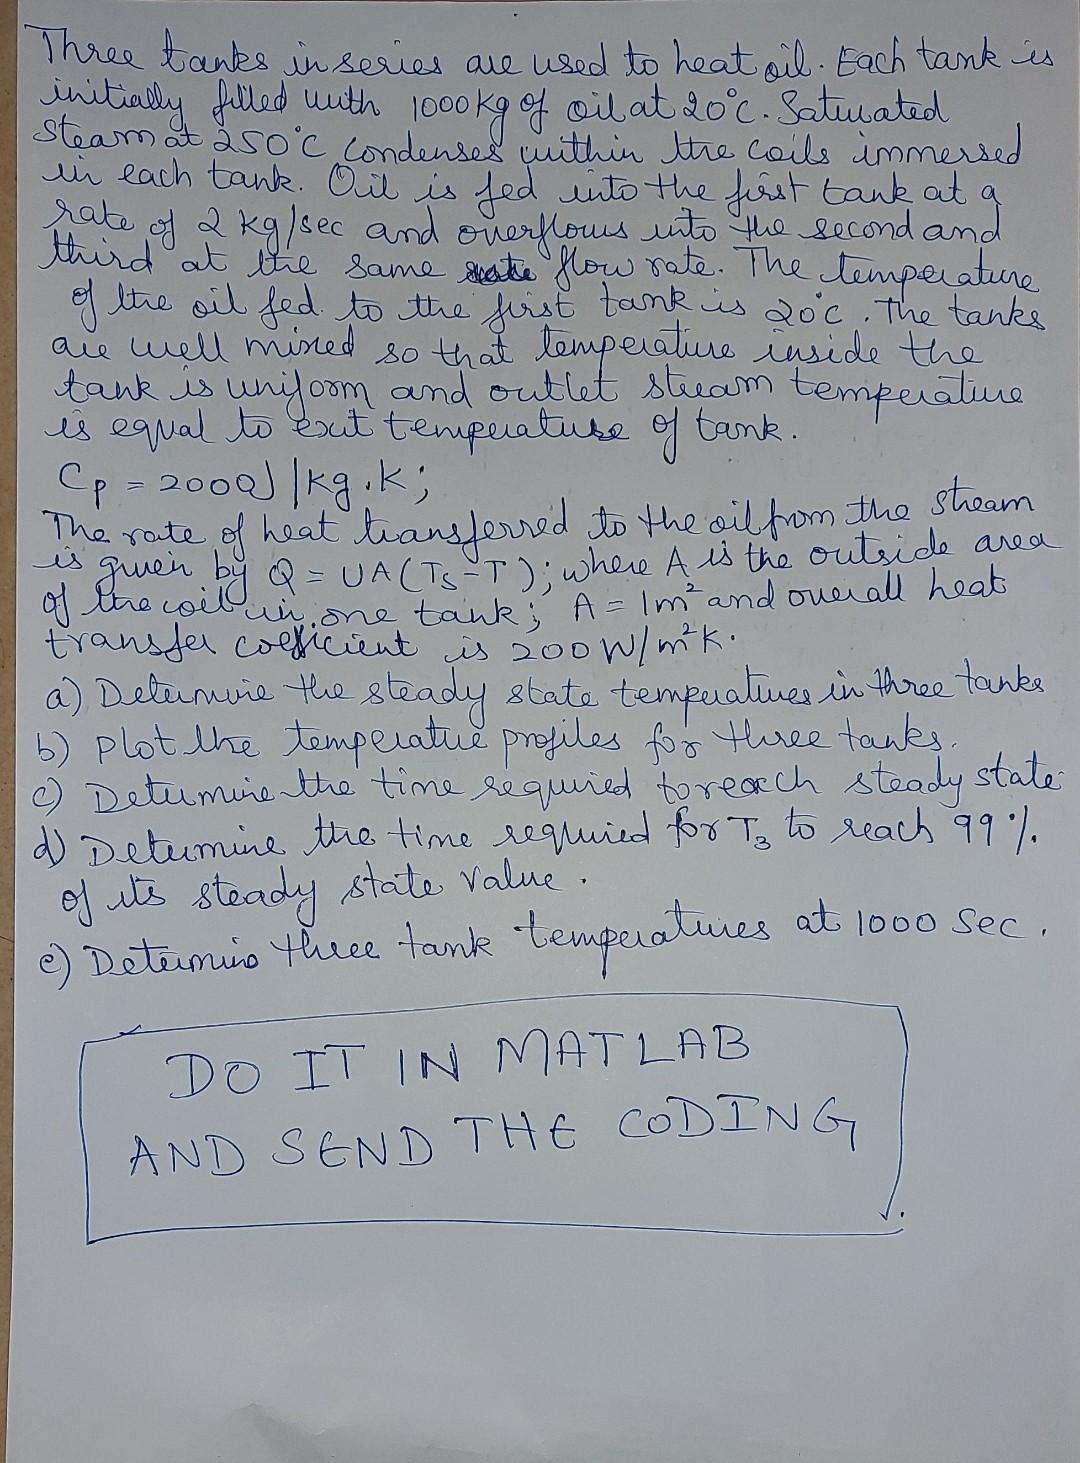 Three tanks in series are used to heat oil. Each tank is
initially filled with 1000kg of oil at 20°c. Saturated
steam at 250°C condenses within the coils immersed
in each tank. Oil is fed into the first tank at a
rate of 2 kg/sec and overflows into the second and
third at the same flow rate. The temperature
of the oil fed to the first tank is 20°c. The tanks
are well mixed so that temperature inside the
tank is uniform and outlet stream temperature
is equal to exit temperature of tank.
Cp = 2000J/kg.K;
The rate of heat transferred to the oil from the stream
is given by Q = UA(Ts-T); where A is the outside area
of the coil in one tank; A = 1m² and overall heat
transfer coefficient is 200 W/m²K.
a) Determine the steady state temperatures in three tanks
b) plot the temperature profiles for three tanks.
c) Determine the time required to reach steady state
d) Determine the time required for T3 to reach 99%
of its steady state value.
e) Determine three tank temperatures at 1000 Sec.
DO IT IN MATLAB
AND SEND THE CODING